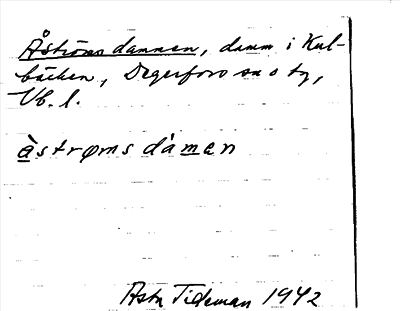 Åströmsdammen, damm i Kul-
bäcken, Degerfors sn o tg,
Vb. l.
åstrøms dàmen
Asta Tideman 1942